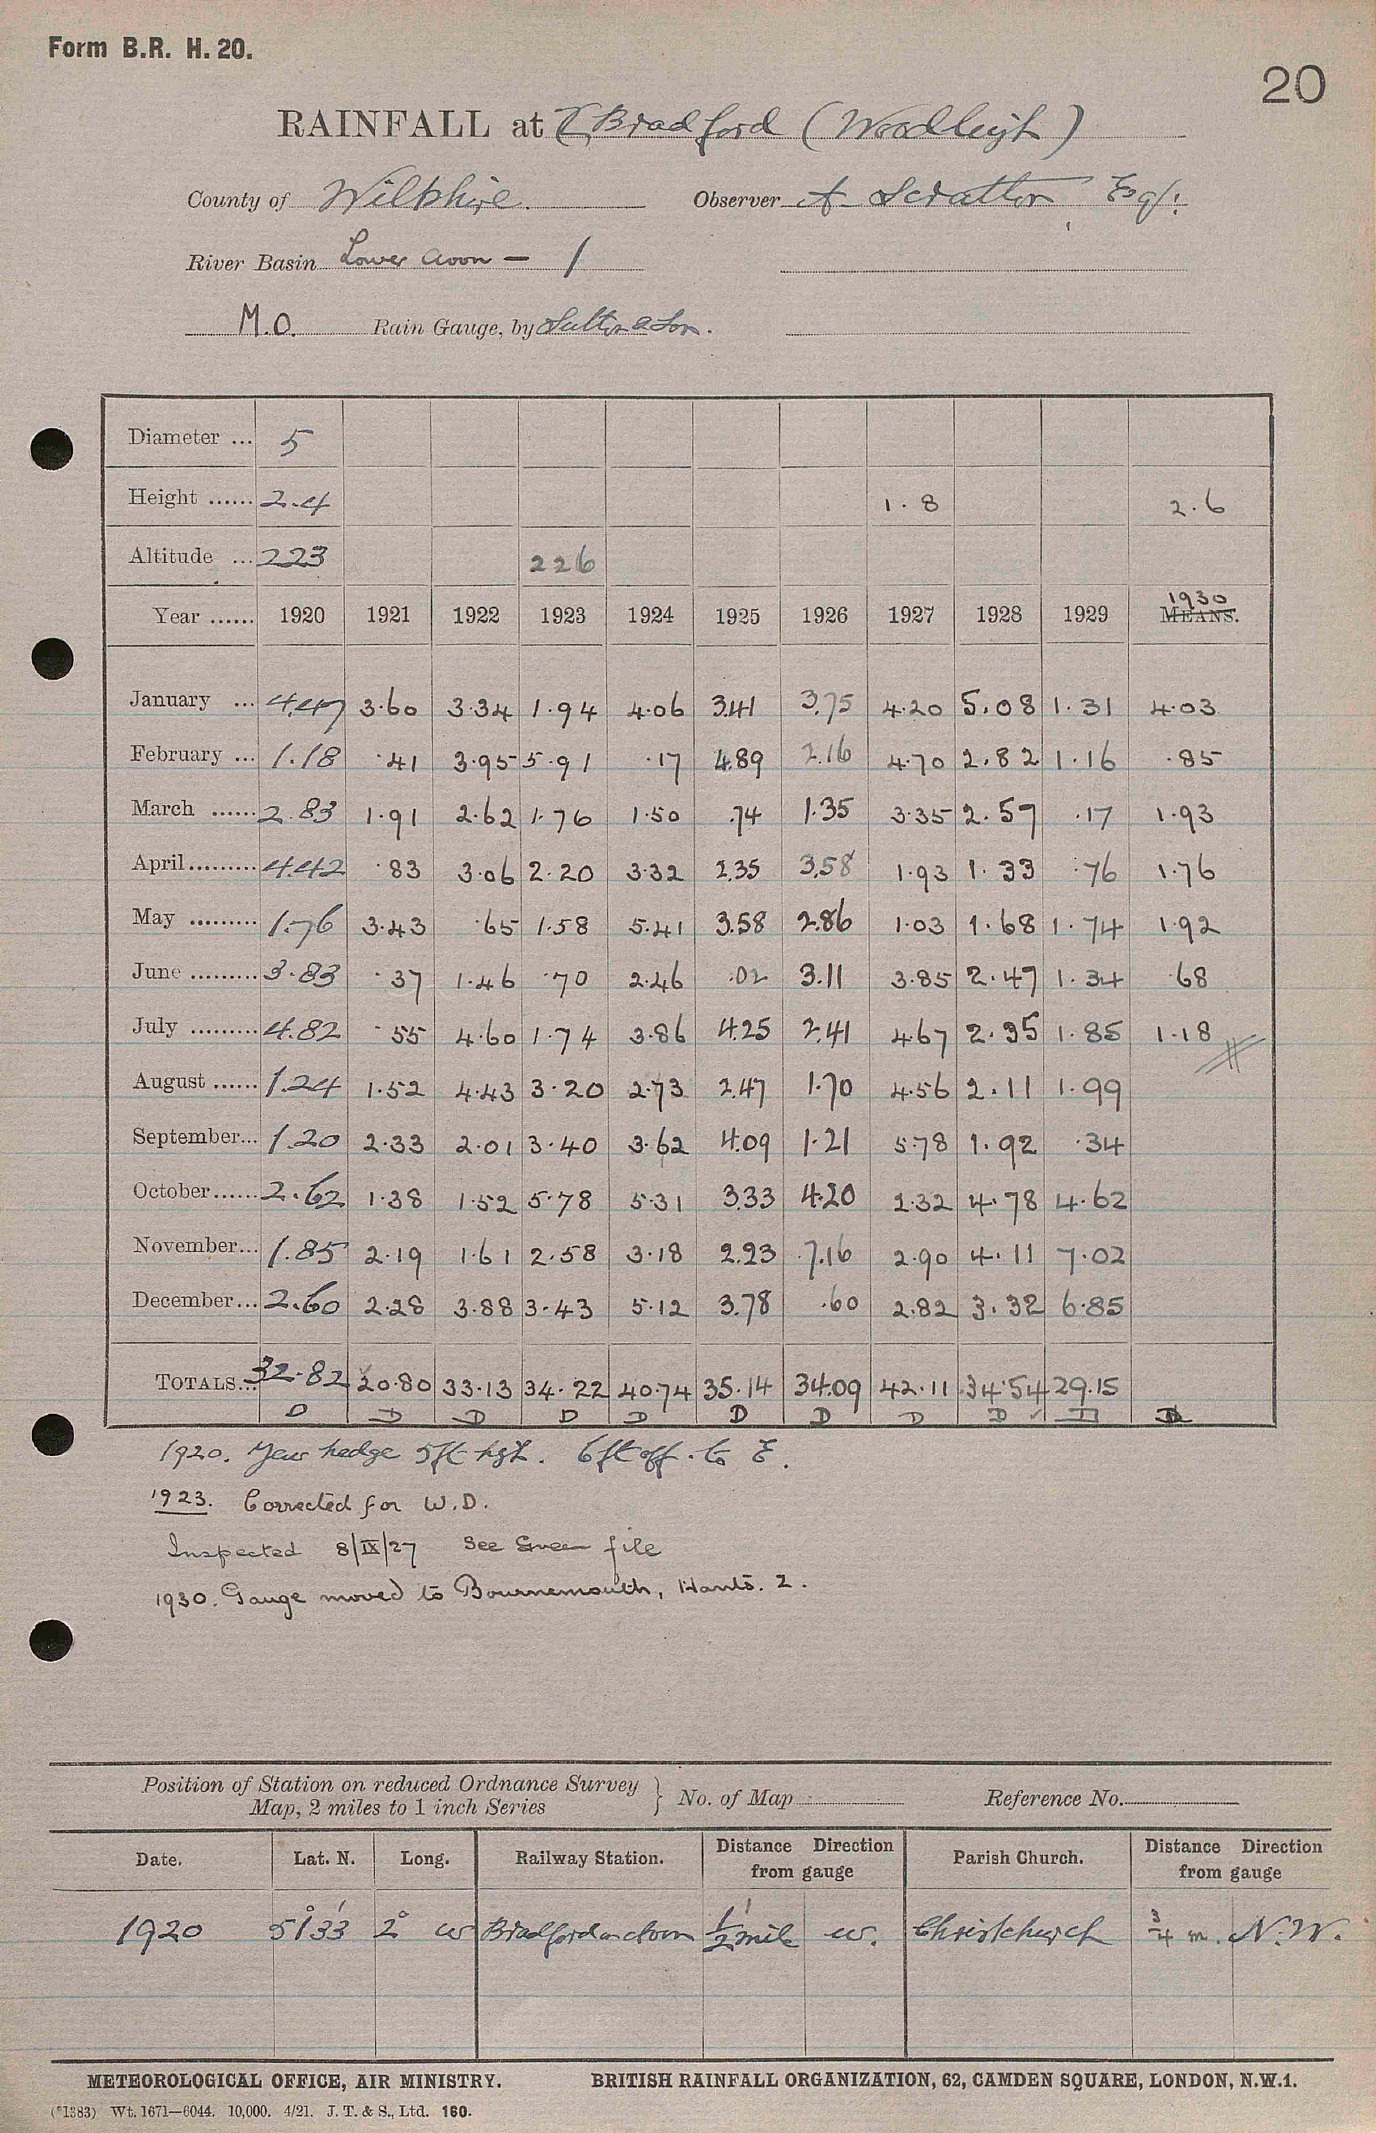 Form B.R. H. 20.
20
RAINFALL at Bradford (Woodleigh)
County of Wiltshire Observer A. Scratton, Esq:
River Basin Lower Avon — 1
M.O. Rain Gauge, by Sutton & Son.
Diameter ... 5
Height ...... 2.4 1.8 2.6
Altitude ... 223 226
Year ...... 1920 1921 1922 1923 1924 1925 1926 1927 1928 1929 1930 MEANS.
January ... 4.47 3.60 3.34 1.94 4.06 3.41 3.75 4.20 5.08 1.31 4.03
February ... 1.18 .41 3.95 5.91 .17 4.89 2.16 4.70 2.82 1.16 .85
March ...... 2.83 1.91 2.62 1.76 1.50 .74 1.35 3.35 2.57 .17 1.93
April......... 4.42 .83 3.06 2.20 3.32 2.35 3.58 1.93 1.33 .76 1.76
May ......... 1.76 3.43 .65 1.58 5.41 3.58 2.86 1.03 1.68 1.74 1.92
June ......... 3.83 .37 1.46 .70 2.46 .02 3.11 3.85 2.47 1.34 .68
July ......... 4.82 .55 4.60 1.74 3.86 4.25 2.41 4.67 2.35 1.85 1.18
August ...... 1.24 1.52 4.43 3.20 2.73 2.47 1.70 4.56 2.11 1.99
September... 1.20 2.33 2.01 3.40 3.62 4.09 1.21 5.78 1.92 .34
October...... 2.62 1.38 1.52 5.78 5.31 3.33 4.20 2.32 4.78 4.62
November... 1.85 2.19 1.61 2.58 3.18 2.23 7.16 2.90 4.11 7.02
December... 2.60 2.28 3.88 3.43 5.12 3.78 .60 2.82 3.32 6.85
TOTALS... 32.82 20.80 33.13 34.22 40.74 35.14 34.09 42.11 34.54 29.15
D D D D D D D D D ✓ D D
1920. Yew hedge 5ft hgh. 6ft off. to E.
1923. Corrected for W.D.
Inspected 8/IX/27 See Green file
1930. Gauge moved to Bournemouth, Hants. 2.
Position of Station on reduced Ordnance Survey Map, 2 miles to 1 inch Series } No. of Map Reference No.
Date. Lat. N. Long. Railway Station. Distance Direction from gauge Parish Church. Distance Direction from gauge
1920 51° 33' 2° W Bradford on Avon 1/2 mile W. Christchurch 3/4 m. N.W.
METEOROLOGICAL OFFICE, AIR MINISTRY. BRITISH RAINFALL ORGANIZATION, 62, CAMDEN SQUARE, LONDON, N.W.1.
(*1383) Wt. 1671—6044. 10,000. 4/21. J. T. & S., Ltd. 160.